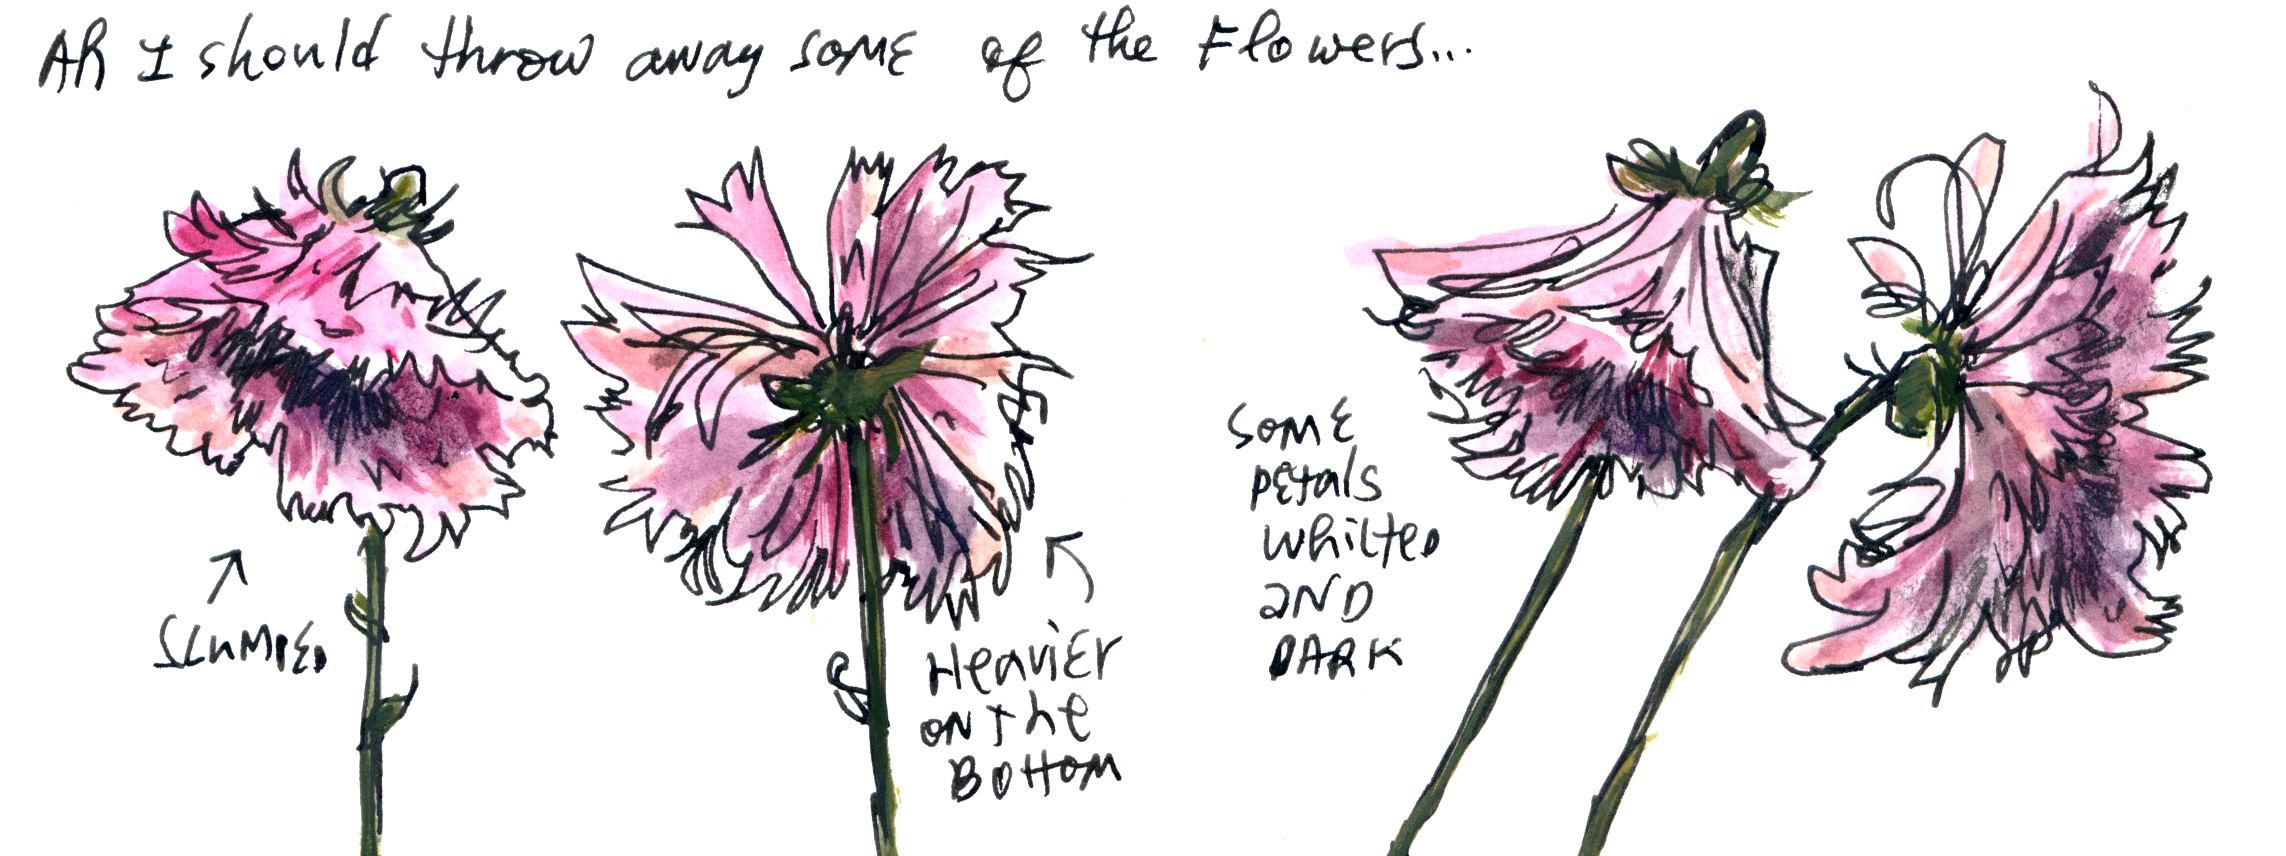 Ah I should throw away some of the Flowers...
SLUMPED
Heavier
on the
Bottom
SOME
petals
whilted
AND
DARK